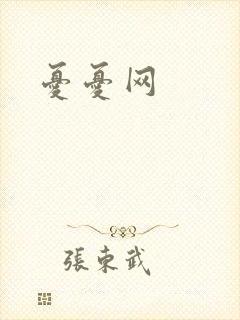 憂憂网
張東武